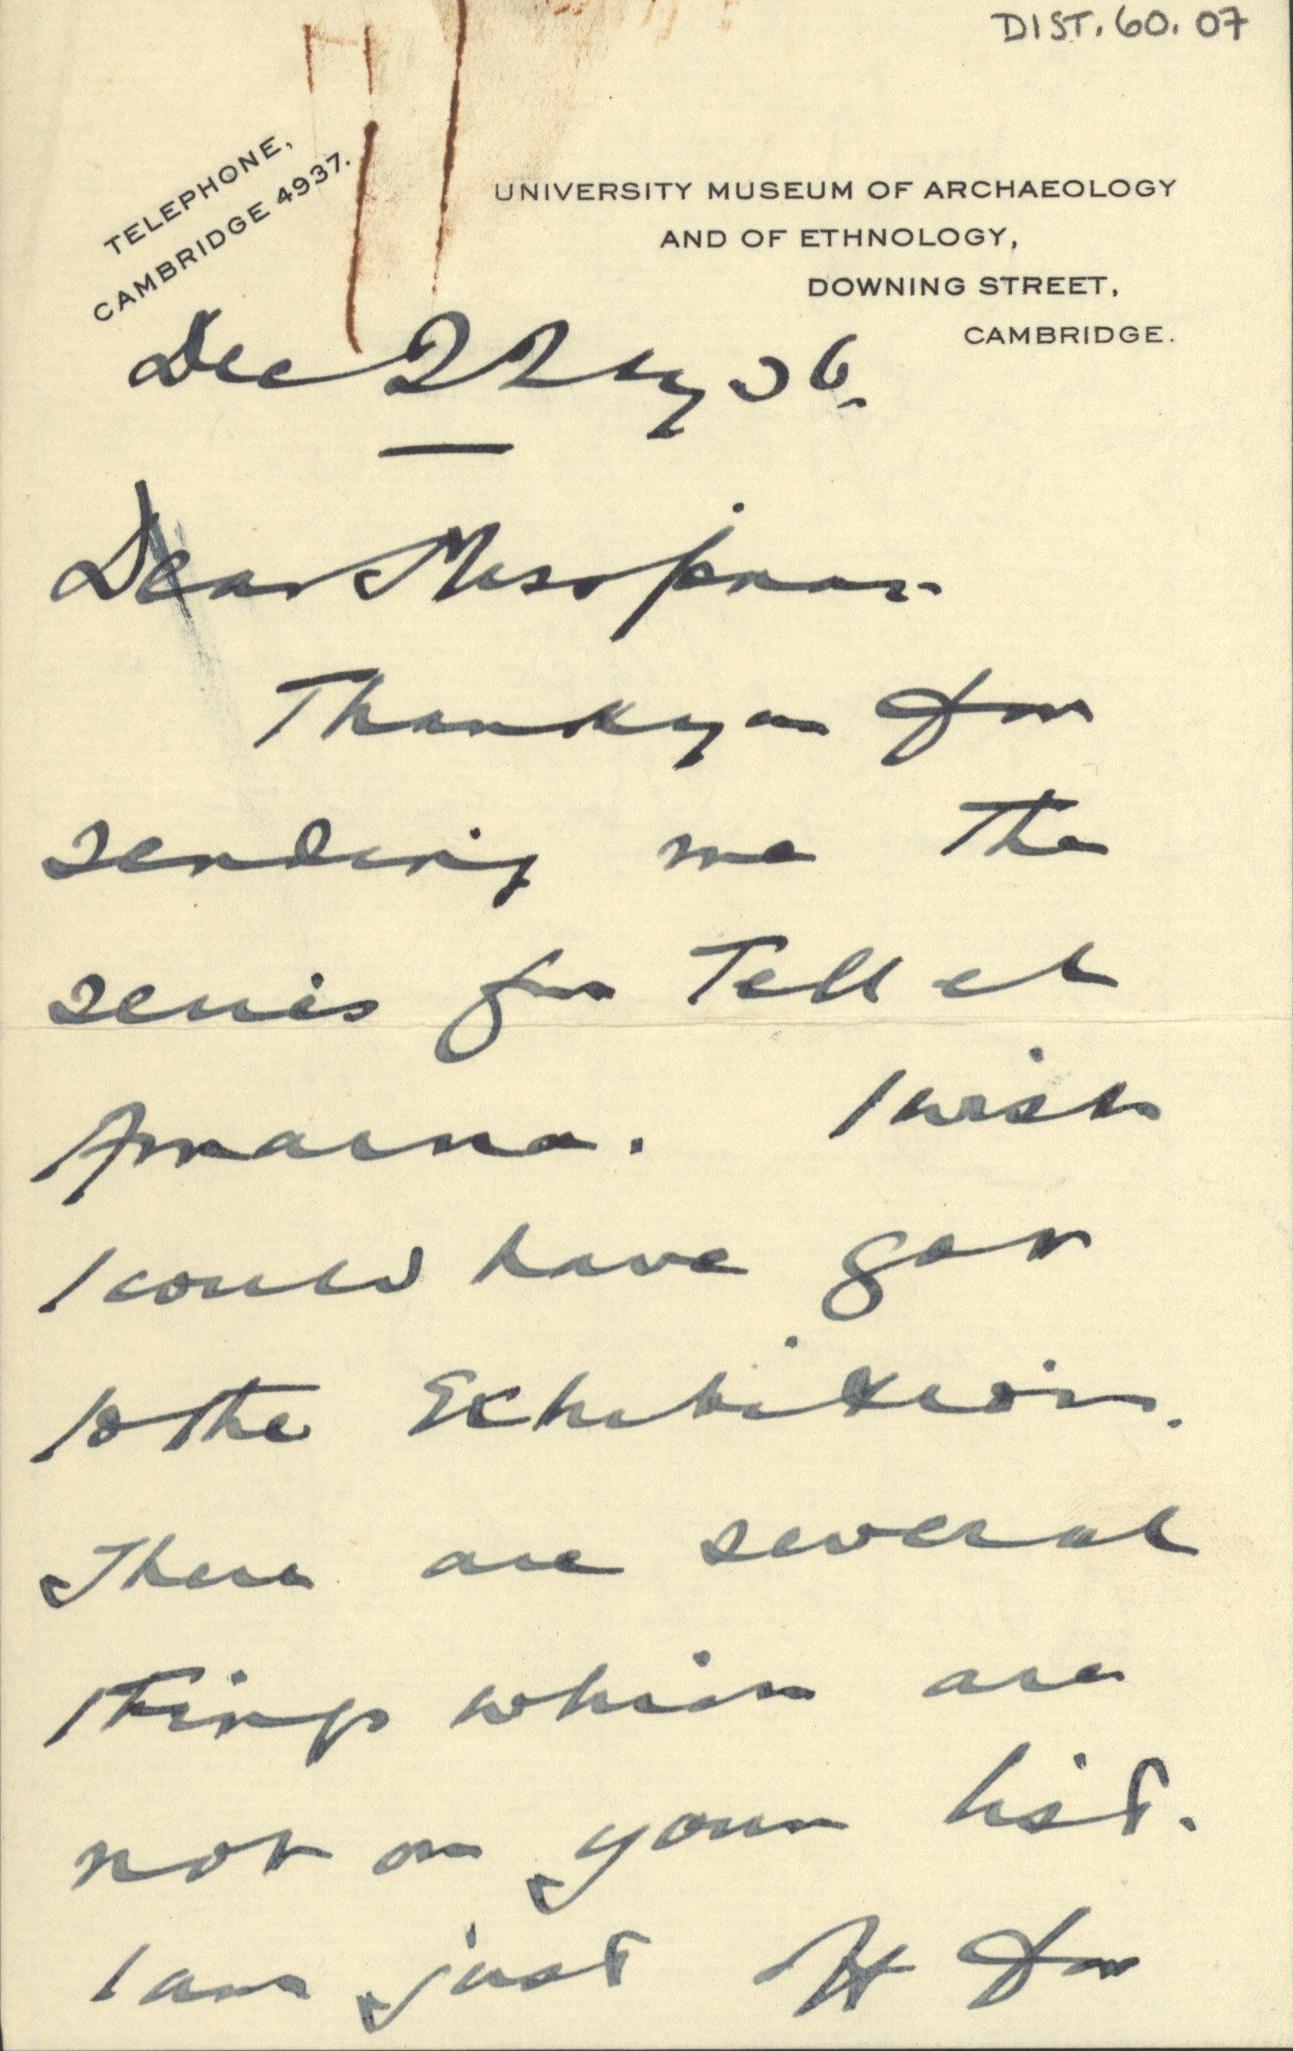 DIST. 60. 07
TELEPHONE,
CAMBRIDGE 4937.
UNIVERSITY MUSEUM OF ARCHAEOLOGY
AND OF ETHNOLOGY,
DOWNING STREET,
CAMBRIDGE.
Dec 22 36.
Dear
Thank you for
sending me the
series from Tell el
Amarna. I wish
I could have got
to the Exhibition.
There are several
things which are
not on your list.
I am just off for